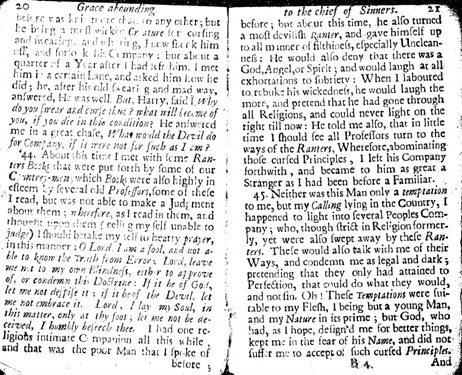 20 Grace abounding
before was knit more than to any other; but
he being a most wicked Creature for cursing
and swearing, and whoring, I now shook him
off, and forsook his Company; but about a
quarter of a Year after I had left him, I met
him in a certain Lane, and asked him how he
did; he, after his old swearing and mad way,
answered, He was well. But, Harry, said I, Why
do you swear and curse thus? what will become of
you, if you die in this condition? He answered
me in a great chafe, What would the Devil do
for Company, if it were not for such as I am?
44. About this time I met with some Ran-
ters Books that were put forth by some of our
Countrey-men, which Books were also highly in
esteem by several old Professors, some of these
I read, but was not able to make a Judgment
about them; wherefore, as I read in them, and
thought upon them (feeling my self unable to
judge) I should betake my self to hearty prayer,
in this manner; O Lord, I am a fool, and not a-
ble to know the Truth from Error; Lord, leave
me not to my own Blindness, either to approve
of, or condemn this Doctrine: If it be of God,
let me not despise it; if it be of the Devil, let
me not embrace it. Lord, I lay my Soul, in
this matter, only at thy foot; let me not be de-
ceived, I humbly beseech thee. I had one re-
ligious intimate Companion all this while,
and that was the poor Man that I spoke of
before;
to the chief of Sinners. 21
before; but about this time, he also turned
a most devilish Ranter, and gave himself up
to all manner of filthiness, especially Unclean-
ness: He would also deny that there was a
God, Angel, or Spirit; and would laugh at all
exhortations to sobriety: When I laboured
to rebuke his wickedness, he would laugh the
more, and pretend that he had gone through
all Religions, and could never light on the
right till now: He told me also, that in little
time I should see all Professors turn to the
ways of the Ranters. Wherefore, abominating
those cursed Principles, I left his Company
forthwith, and became to him as great a
Stranger as I had been before a Familiar.
45. Neither was this Man only a temptation
to me, but my Calling lying in the Country, I
happened to light into several Peoples Com-
pany; who, though strict in Religion former-
ly, yet were also swept away by these Ran-
ters. These would also talk with me of their
Ways, and condemn me as legal and dark;
pretending that they only had attained to
Perfection, that could do what they would,
and not sin. Oh! These Temptations were sui-
table to my Flesh, I being but a young Man,
and my Nature in its prime; but God, who
had, as I hope, design'd me for better things,
kept me in the fear of his Name, and did not
suffer me to accept of such cursed Principles.
B 4. And